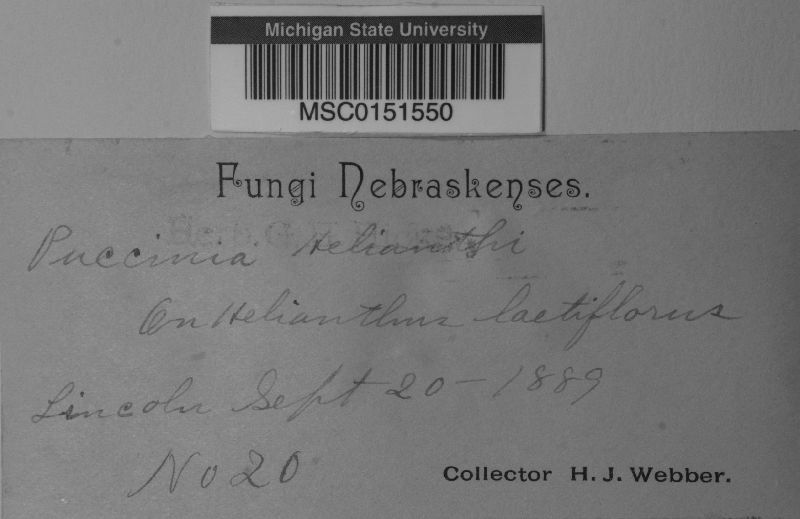 Michigan State University
MSC0151550
Fungi Nebraskenses.
Puccinia Helianthi
On Helianthus laetiflorus
Lincoln Sept 20 - 1889
No 20
Collector H. J. Webber.